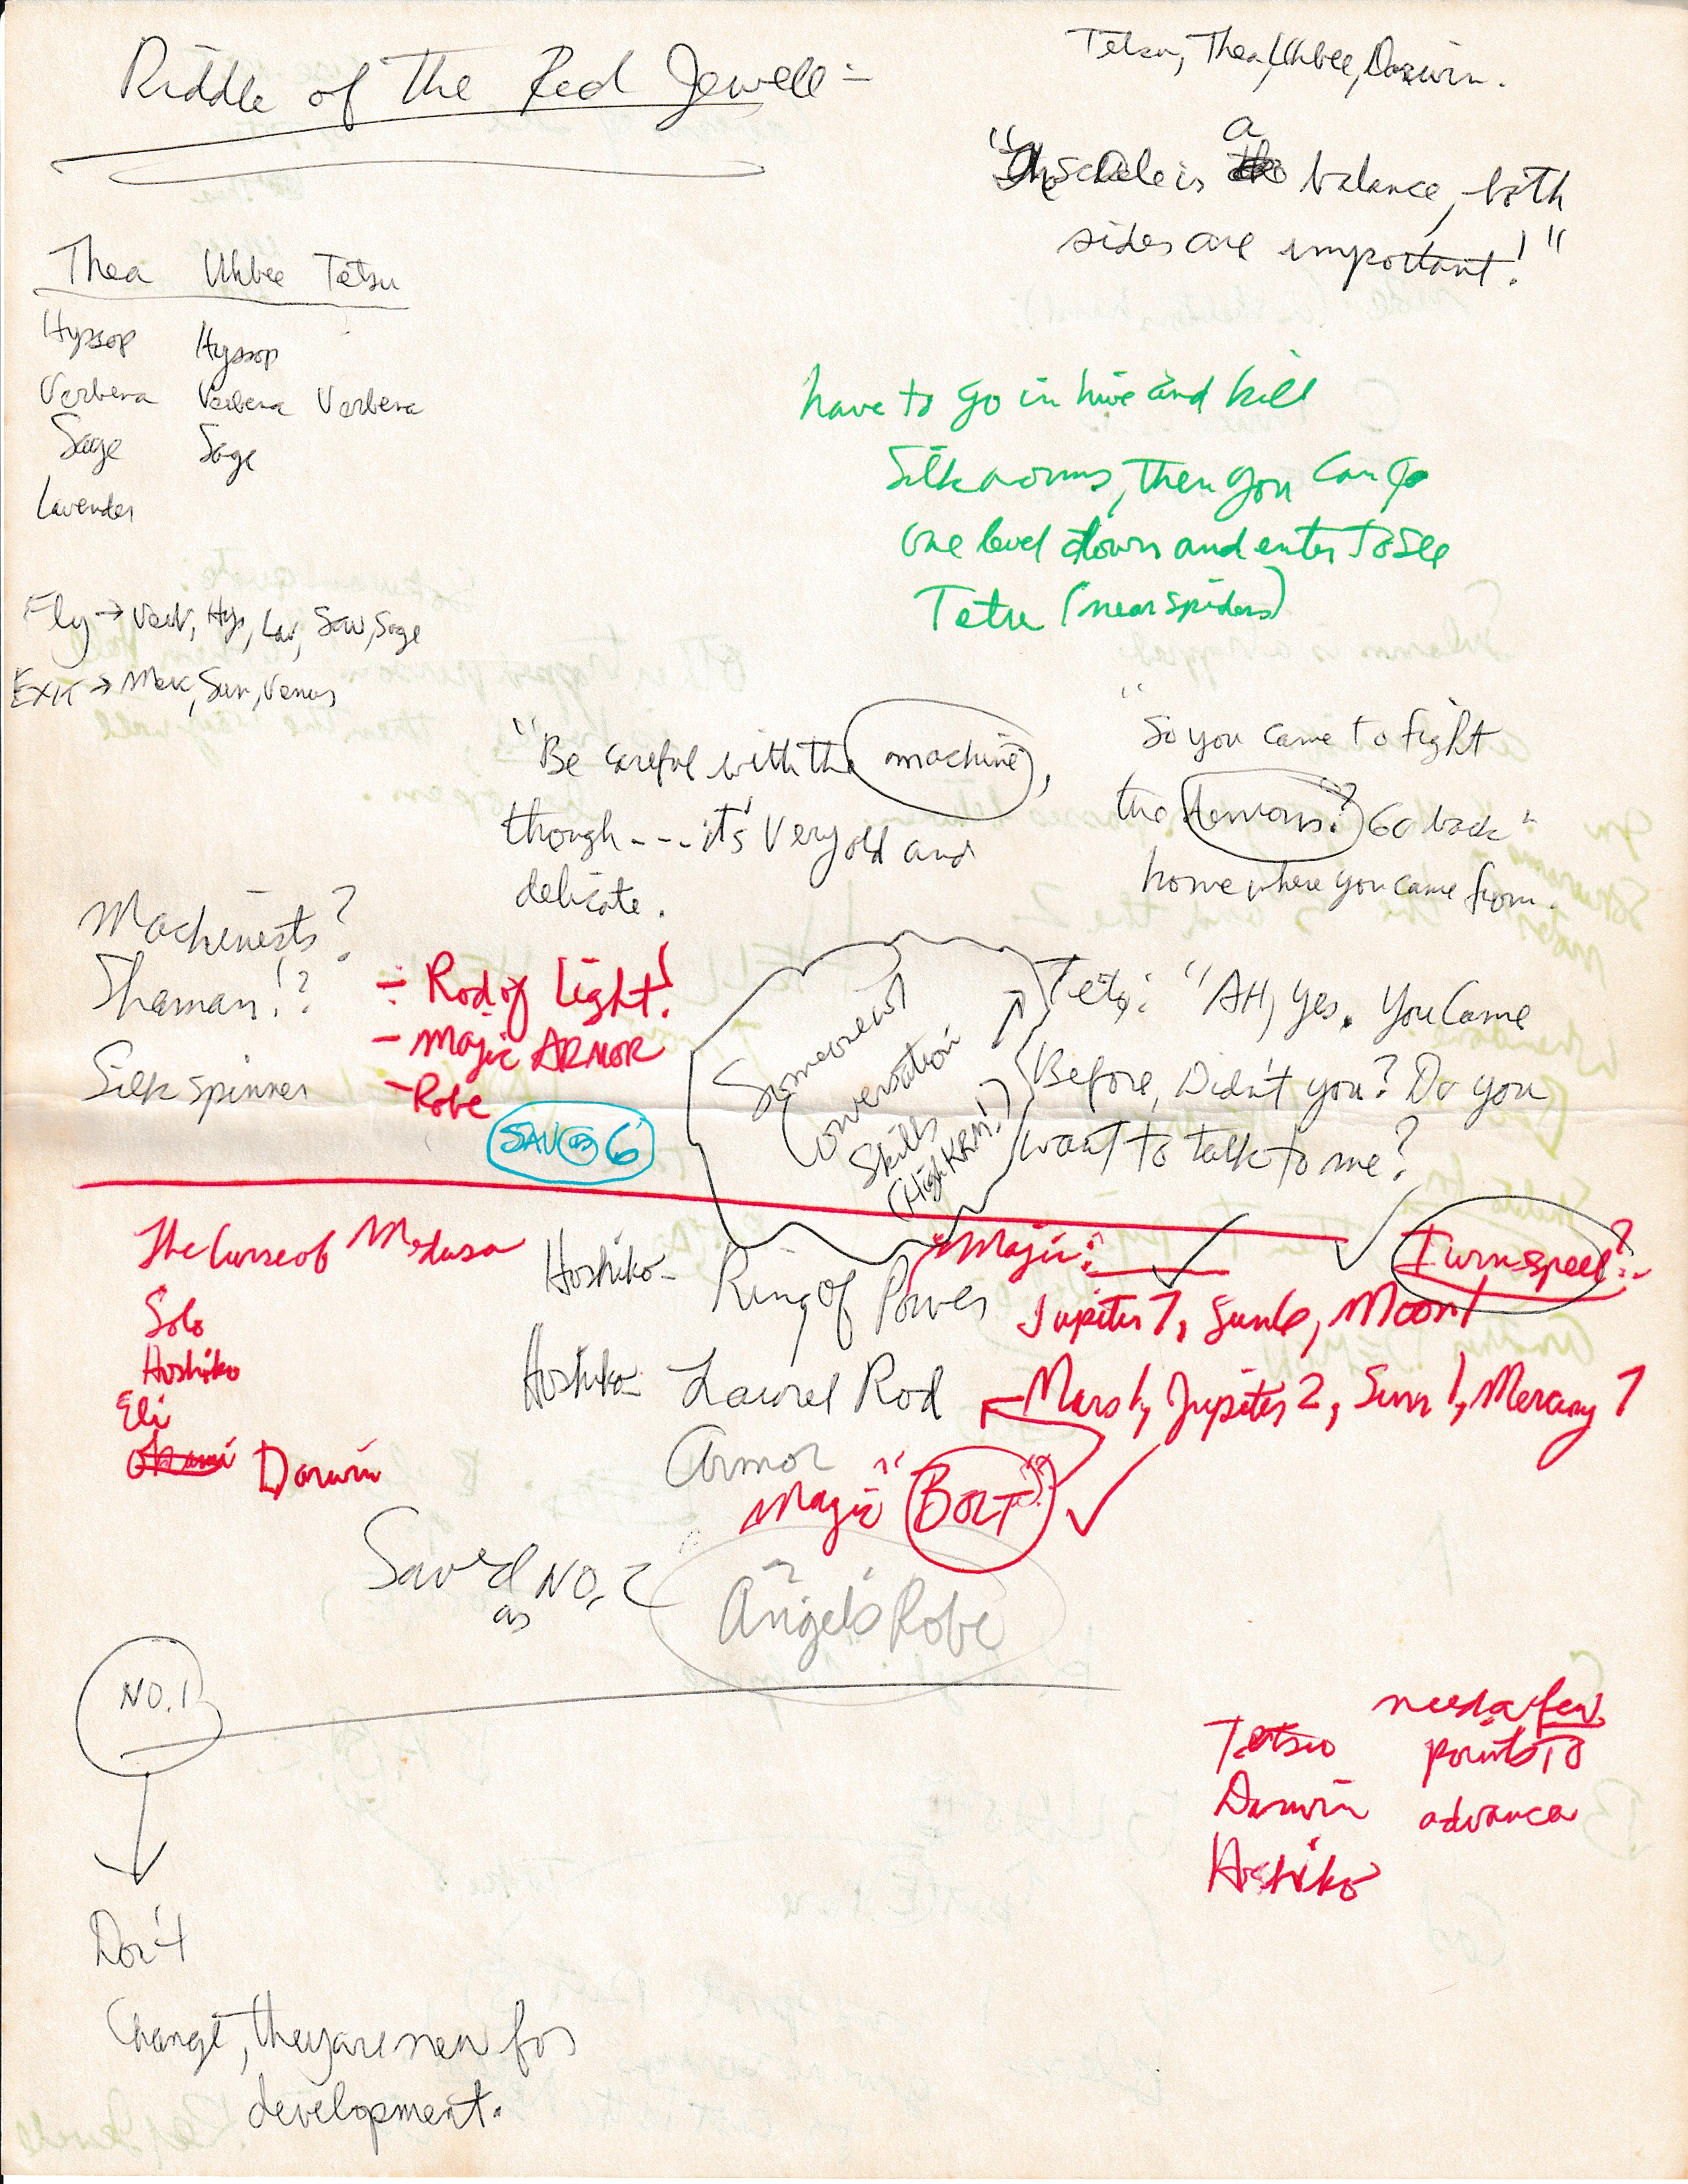 Riddle of the Red Jewel -
Tetsu, Thea, Uhbee, Darwin.
"The scale is a balance, both
sides are important!"
Thea Uhbee Tetsu
Hyssop Hyssop
Verbena Verbena Verbena
Sage Sage
Lavender
have to go in hive and kill
silkworms, then you can go
one level down and enter to see
Tetsu (near spiders)
Fly → Verb, Hys, Lav, Saw, Sage
EXIT → Merc, Sun, Venus
"Be careful with the machine,
though --- it's very old and
delicate.
"So you came to fight
the demons? Go back"
home where you came from.
Machinests?
Shaman!?
Silk spinner
- Rod of Light!
- Magic ARMOR
- Robe
SAV as 6
Someone w/
Conversation
Skills
(High KRM!)
Tets: "AH, yes. You Came
Before, Didn't you? Do you
want to talk to me?
The Curse of Medusa
Solo
Hoshiko
Eli
Darwin
Hoshiko - Ring of Power
Magic:
Turn-speed?
Jupiter 7, Sun 6, Moon 1
Hoshiko - Laurel Rod
Mars 1, Jupiter 2, Sun 1, Mercury 7
Armor
Magic "BOLT"?
Saved as NO. 2
"Angel's Robe
NO. 1
Don't
Change, they are new for
development.
need a few
Tetsu points to
Darwin advance
Hoshiko